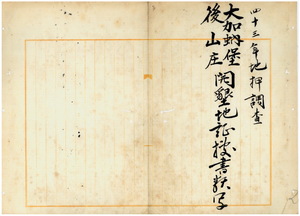 四十三年地押調查
大加蚋堡
後山庄
開墾地証拠書類写